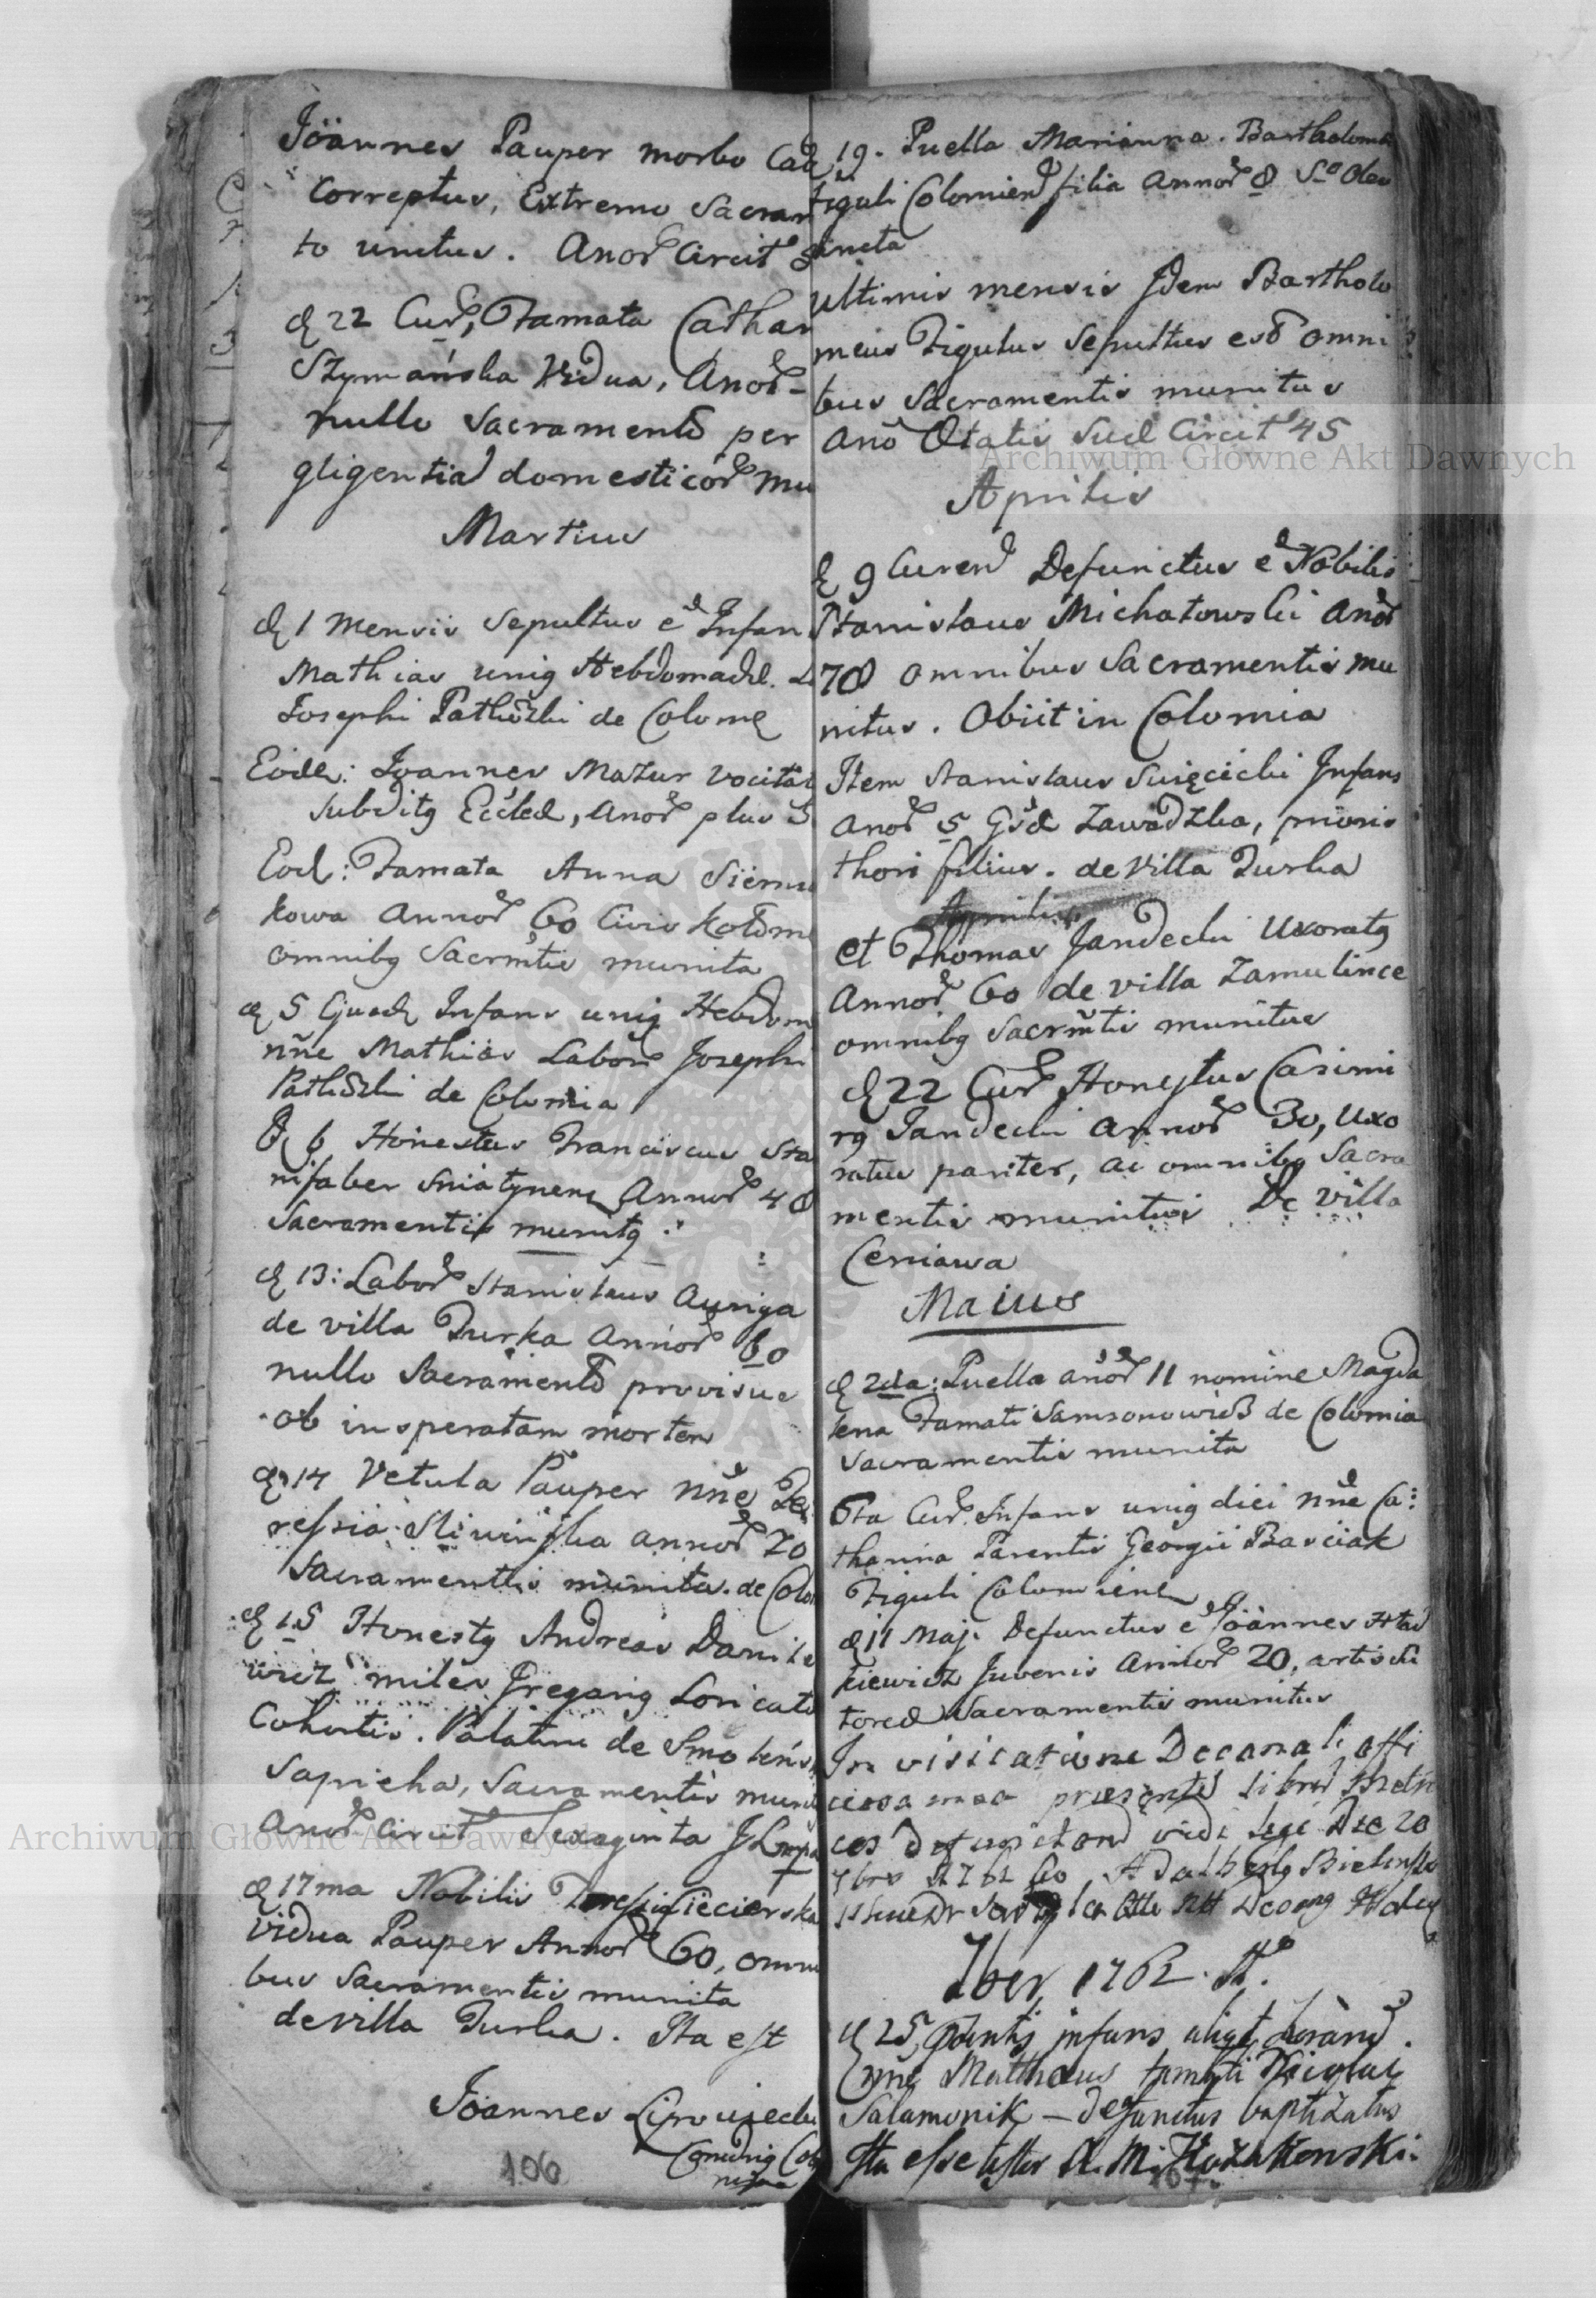 Jöannes Pauper morbo Cad
Correptus, Extremo Sacram
to unctus. Anor̃ Circit
d 22 Cur̃, Famata Cathar
Szymańska Vidua, Anor̃
nullo Sacramento per
gligentia domesticor̃ mu
Martius
d 1 mensis Sepultus ẽ Infan
Mathias unig Hebdomadæ. L
Josephi de Colom
Eode: Joannes Mazur vocitat
Subditg Eccleæ, Anor̃ plus
Eod: Famata Anna
kowa Annor̃ 60 Civis Kołom
omnibg Sacrm̃tis munita
d 5 Infans unig Hebdom
nñe Mathias Labor̃ Josephi
de Colomia
d 6 Honestus Franciscus Sta
nifaber Sniatynens Annor̃ 48
Sacramentis munitg
d 13: Labor̃ Stanislaus Auriga
de villa Turka Annor̃ 60
nullo Sacramento provisus
ob insperatam mortem
d 14 Vetula Pauper nñe Te
ressia Sliwinska annor̃ 70
Sacramentis munita. de Colo
d 15 Honestg Andreas Danile
wicz miles Gregarig Loricat
Cohortis. Palatini de Smoleńs
Sapieha, Sacramentis muni
Anor̃ Circit Sexaginta
d 17ma Nobilis
vidua Pauper Annor̃ 60, omni
bus Sacramentis munita
de villa Turka. Ita est
Jöannes
106
19. Puella Marianna. Bartholom
figuli Colomien filia annor̃ 8 So Oleo
uncta
ultimis mensis Idem Bartholo
meus Figulus Sepultus est omni
bus Sacramentis munitus
ano Ætatis Suæ Circit 45
Aprilis
d 9 Curen Defunctus ẽ Nobilis
Stanislaus Michałowski Anor̃
78 omnibus Sacramentis mu
nitus. Obiit in Colomia
Item Stanislaus Święcicki Infans
anor̃ 5 Zawadzka, prioris
thori filius. de villa Turka
Aprilis
et Thomas Jandecki Uxoratg
annor̃ 60 de villa Zamulince
omnibg Sacrm̃tis munitus
d 22 Cur̃ Honestus Casimi
rg Jandecki annor̃ 30, Uxo
ratus pariter, ac omnibg Sacra
mentis munitus De villa
Ceniawa
Maius
d 2da: Puella anor̃ 11 nomine Magda
lena Famati Samsonowicz de Colomia
Sacramentis munita
6ta Cur̃ Infans unig diei nñe Ca:
tharina Parentis Georgii Basciak
Figuli Colomiens
d 11 Maji Defunctus ẽ Jöannes
kiewicz Juvenis Annor̃ 20, artis
Sacramentis munitus
In visitatione Decanali offi
ciosa mea præsente libro Metri
ces defunctorũ vidi legi Die 20
7bris 1762 Ao Adalbertg Bielinski
7ber 1762. Ao
d 25, infans
nñe Matthæus famati Nicolai
Salamonik – defunctus baptizatus
Ita esse testor A. M.